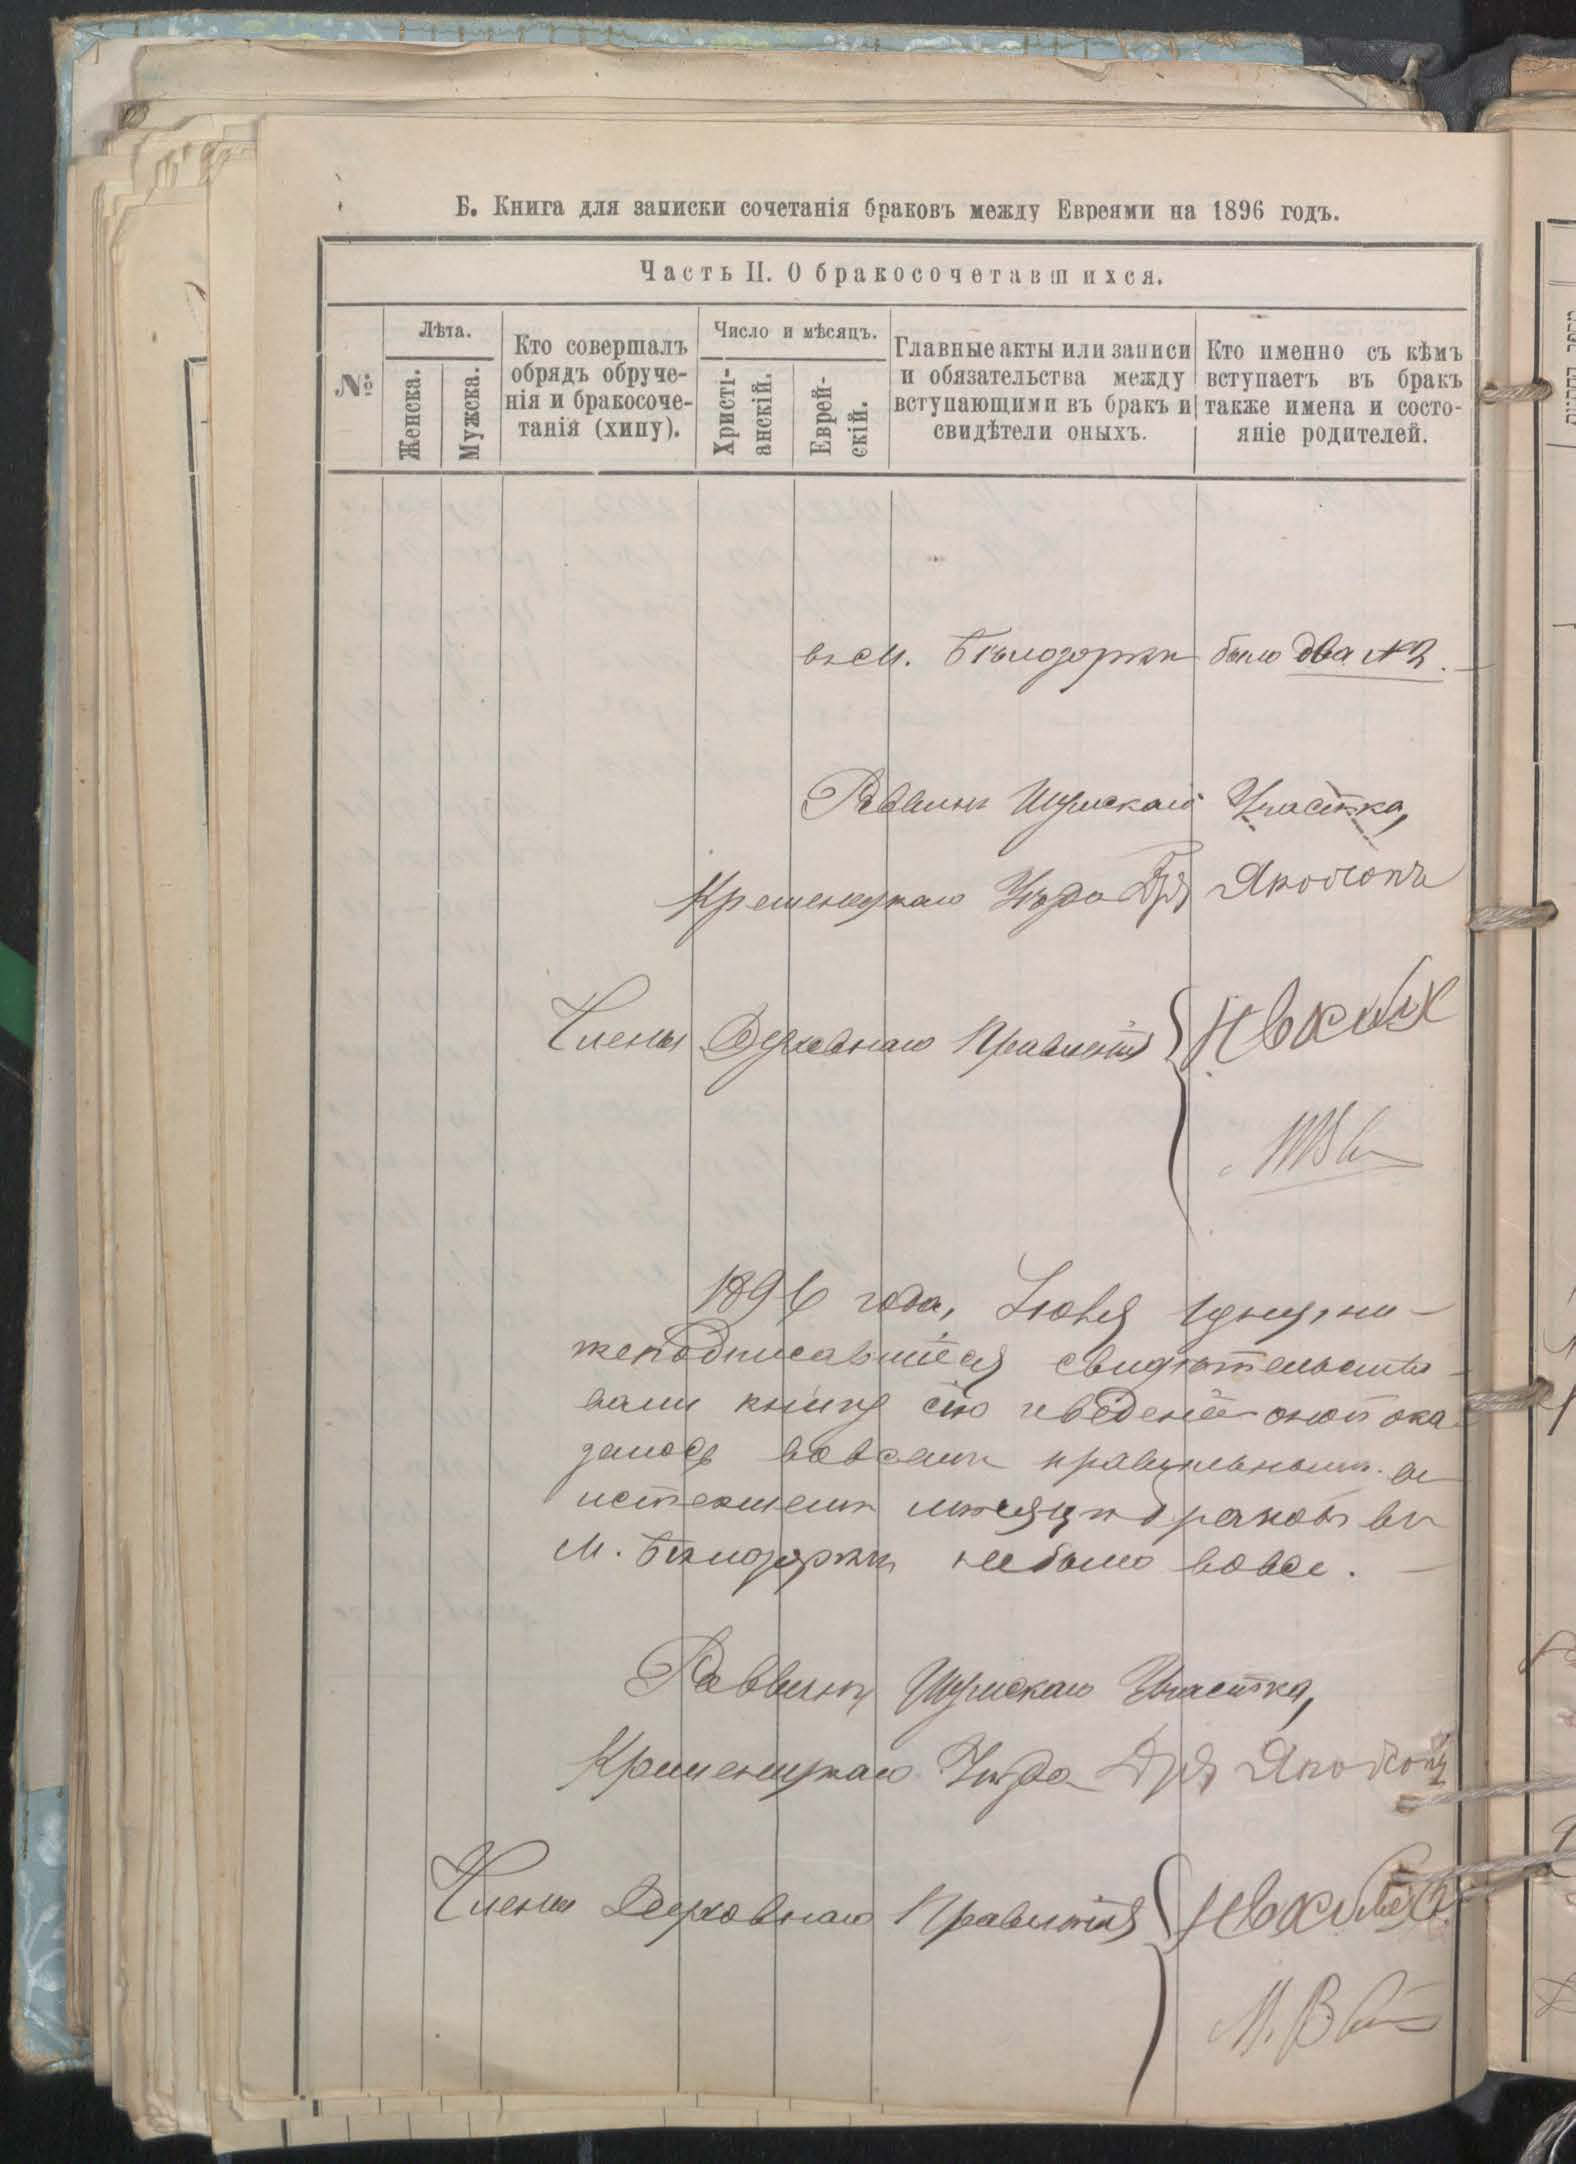 Б. Книга для записки сочетанія браковъ между Евреями на 1896 годъ.
Часть II. О бракосочетавшихся.
№
Лѣта.
Женска.
Мужска.
Кто совершалъ
обрядъ обруче-
нія и бракосоче-
танія (хипу).
Число и мѣсяцъ.
Христі-
анскій.
Еврей-
скій.
Главные акты или записи
и обязательства между
вступающими въ бракъ и
свидѣтели оныхъ.
Кто именно съ кѣмъ
вступаетъ въ бракъ
также имена и состо-
яніе родителей.
въ м. Бѣлозоркѣ было два №2.
Раввинъ Шумскаго Участка,
Кременецкаго Уѣзда Якобсонъ
Члены Духовнаго Правленія
1896 года, Іюня 1 дня, ни-
жеподписавшіеся свидѣтельство-
вали книгу сію и веденіе оной ока-
залось вовсемъ правильнымъ. въ
истекшемъ мѣсяцѣ браковъ въ
м. Бѣлозоркѣ небыло вовсе.
Раввинъ Шумскаго Участка,
Кременецкаго Уѣзда Якобсонъ
Члены Духовнаго Правленія